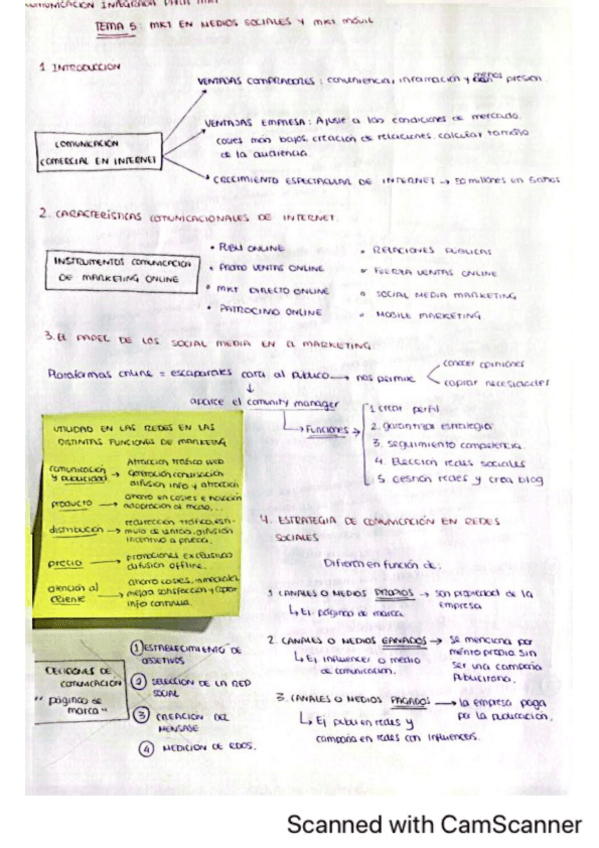 COMUNICACIÓN INTEGRADA PARA MKT
TEMA 5: MKT EN MEDIOS SOCIALES Y MKT MÓVIL
1 INTRODUCCION
VENTAJAS COMPRADORES: conveniencia, información y menos presion.
VENTAJAS EMPRESA: Ajuste a las condiciones de mercado.
costes más bajos, creación de relaciones, calcular tamaño
de la audiencia.
COMUNICACIÓN
COMERCIAL EN INTERNET
CRECIMIENTO ESPECTACULAR DE INTERNET → 50 millones en 5 años
2. CARACTERÍSTICAS COMUNICACIONALES DE INTERNET.
INSTRUMENTOS COMUNICACION
DE MARKETING ONLINE
• PUBLI ONLINE
• PROMO VENTAS ONLINE
• MKT DIRECTO ONLINE
• PATROCINIO ONLINE
• RELACIONES PÚBLICAS
• FUERZA VENTAS ONLINE
• SOCIAL MEDIA MARKETING
• MOBILE MARKETING
3. EL PAPEL DE LOS SOCIAL MEDIA EN EL MARKETING.
Plataformas online = escaparates cara al público → nos permite
conocer opiniones
captar necesidades
↓
aparece el comunity manager
→ Funciones →
1. crear perfil
2. garantizar estrategia
3. seguimiento competencia.
4. Elección redes sociales
5. Gestión redes y crea blog
UTILIDAD EN LAS REDES EN LAS
DISTINTAS FUNCIONES DE MARKETING
comunicación y publicidad →
Atracción tráfico web
difusión info y atracción
producto →
distribución →
precio →
promociones exclusivas
difusión offline.
atención al cliente →
mejora satisfacción y
info continua.
4. ESTRATEGIA DE COMUNICACIÓN EN REDES
SOCIALES
Difieren en función de:
1 CANALES O MEDIOS PROPIOS → son propiedad de la
empresa
↳ Ej página de marca
2. CANALES O MEDIOS GANADOS → se menciona por
mérito propio sin
ser una campaña
publicitaria.
↳ Ej influencer o medio
de comunicación.
3. CANALES O MEDIOS PAGADOS → la empresa paga
por la publicación.
↳ Ej publi en redes y
campaña en redes con influencers.
DECISIONES DE
COMUNICACION
"páginas de
marca"
1 ESTABLECIMIENTO DE
OBJETIVOS
2 SELECCION DE LA RED
SOCIAL
3 CREACION DEL
MENSAJE
4 MEDICION DE RDOS.
Scanned with CamScanner